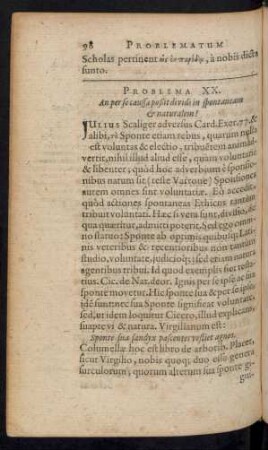 98 PROBLEMATUM
Scholas pertinent ὡς ἐν παρόδῳ, à nobis dicta
sunto.
PROBLEMA XX.
An per se caussa possit dividi in spontaneam
& naturalem?
JULIUS Scaliger adversus Card. Exer. 77. &
alibi, τὸ Sponte etiam rebus, quarum nulla
est voluntas & electio, tribuêrem animad-
vertit, nihil illud aliud esse, quàm voluntatis
& libenter; quòd hoc adverbium è sponsio-
nibus natum sit (teste Varrone) Sponsiones
autem omnes sint voluntariæ. Eò accedit,
quòd actiones spontaneas Ethicus tantùm
tribuit voluntati. Hæc si vera sunt, divisio, de
qua quæritur, admitti potest. Sed ego
no statuo: Sponte ab optimis quibusq; Lati-
nis veteribus & recentioribus non tantùm
studio, voluntate, judicioq; sed etiam natura
agentibus tribui. Id quod exemplis sic
tius. Cic. de Nat. deor. Ignis per se ac sua
sponte movetur. Hîc sponte sua & per se
idē sunt: nec sua Sponte significat voluntate,
sed, ut idem loquitur Cicero, illud explicans,
suapte vi & natura. Virgilianum est:
Sponte sua sandyx pascentes vestiet agnos.
Columellæ hoc est libro de arboribus. Placet,
sicut Virgilio, nobis quoq; duo esse genera
surculorum; quorum alterum sua sponte gi-
gni-